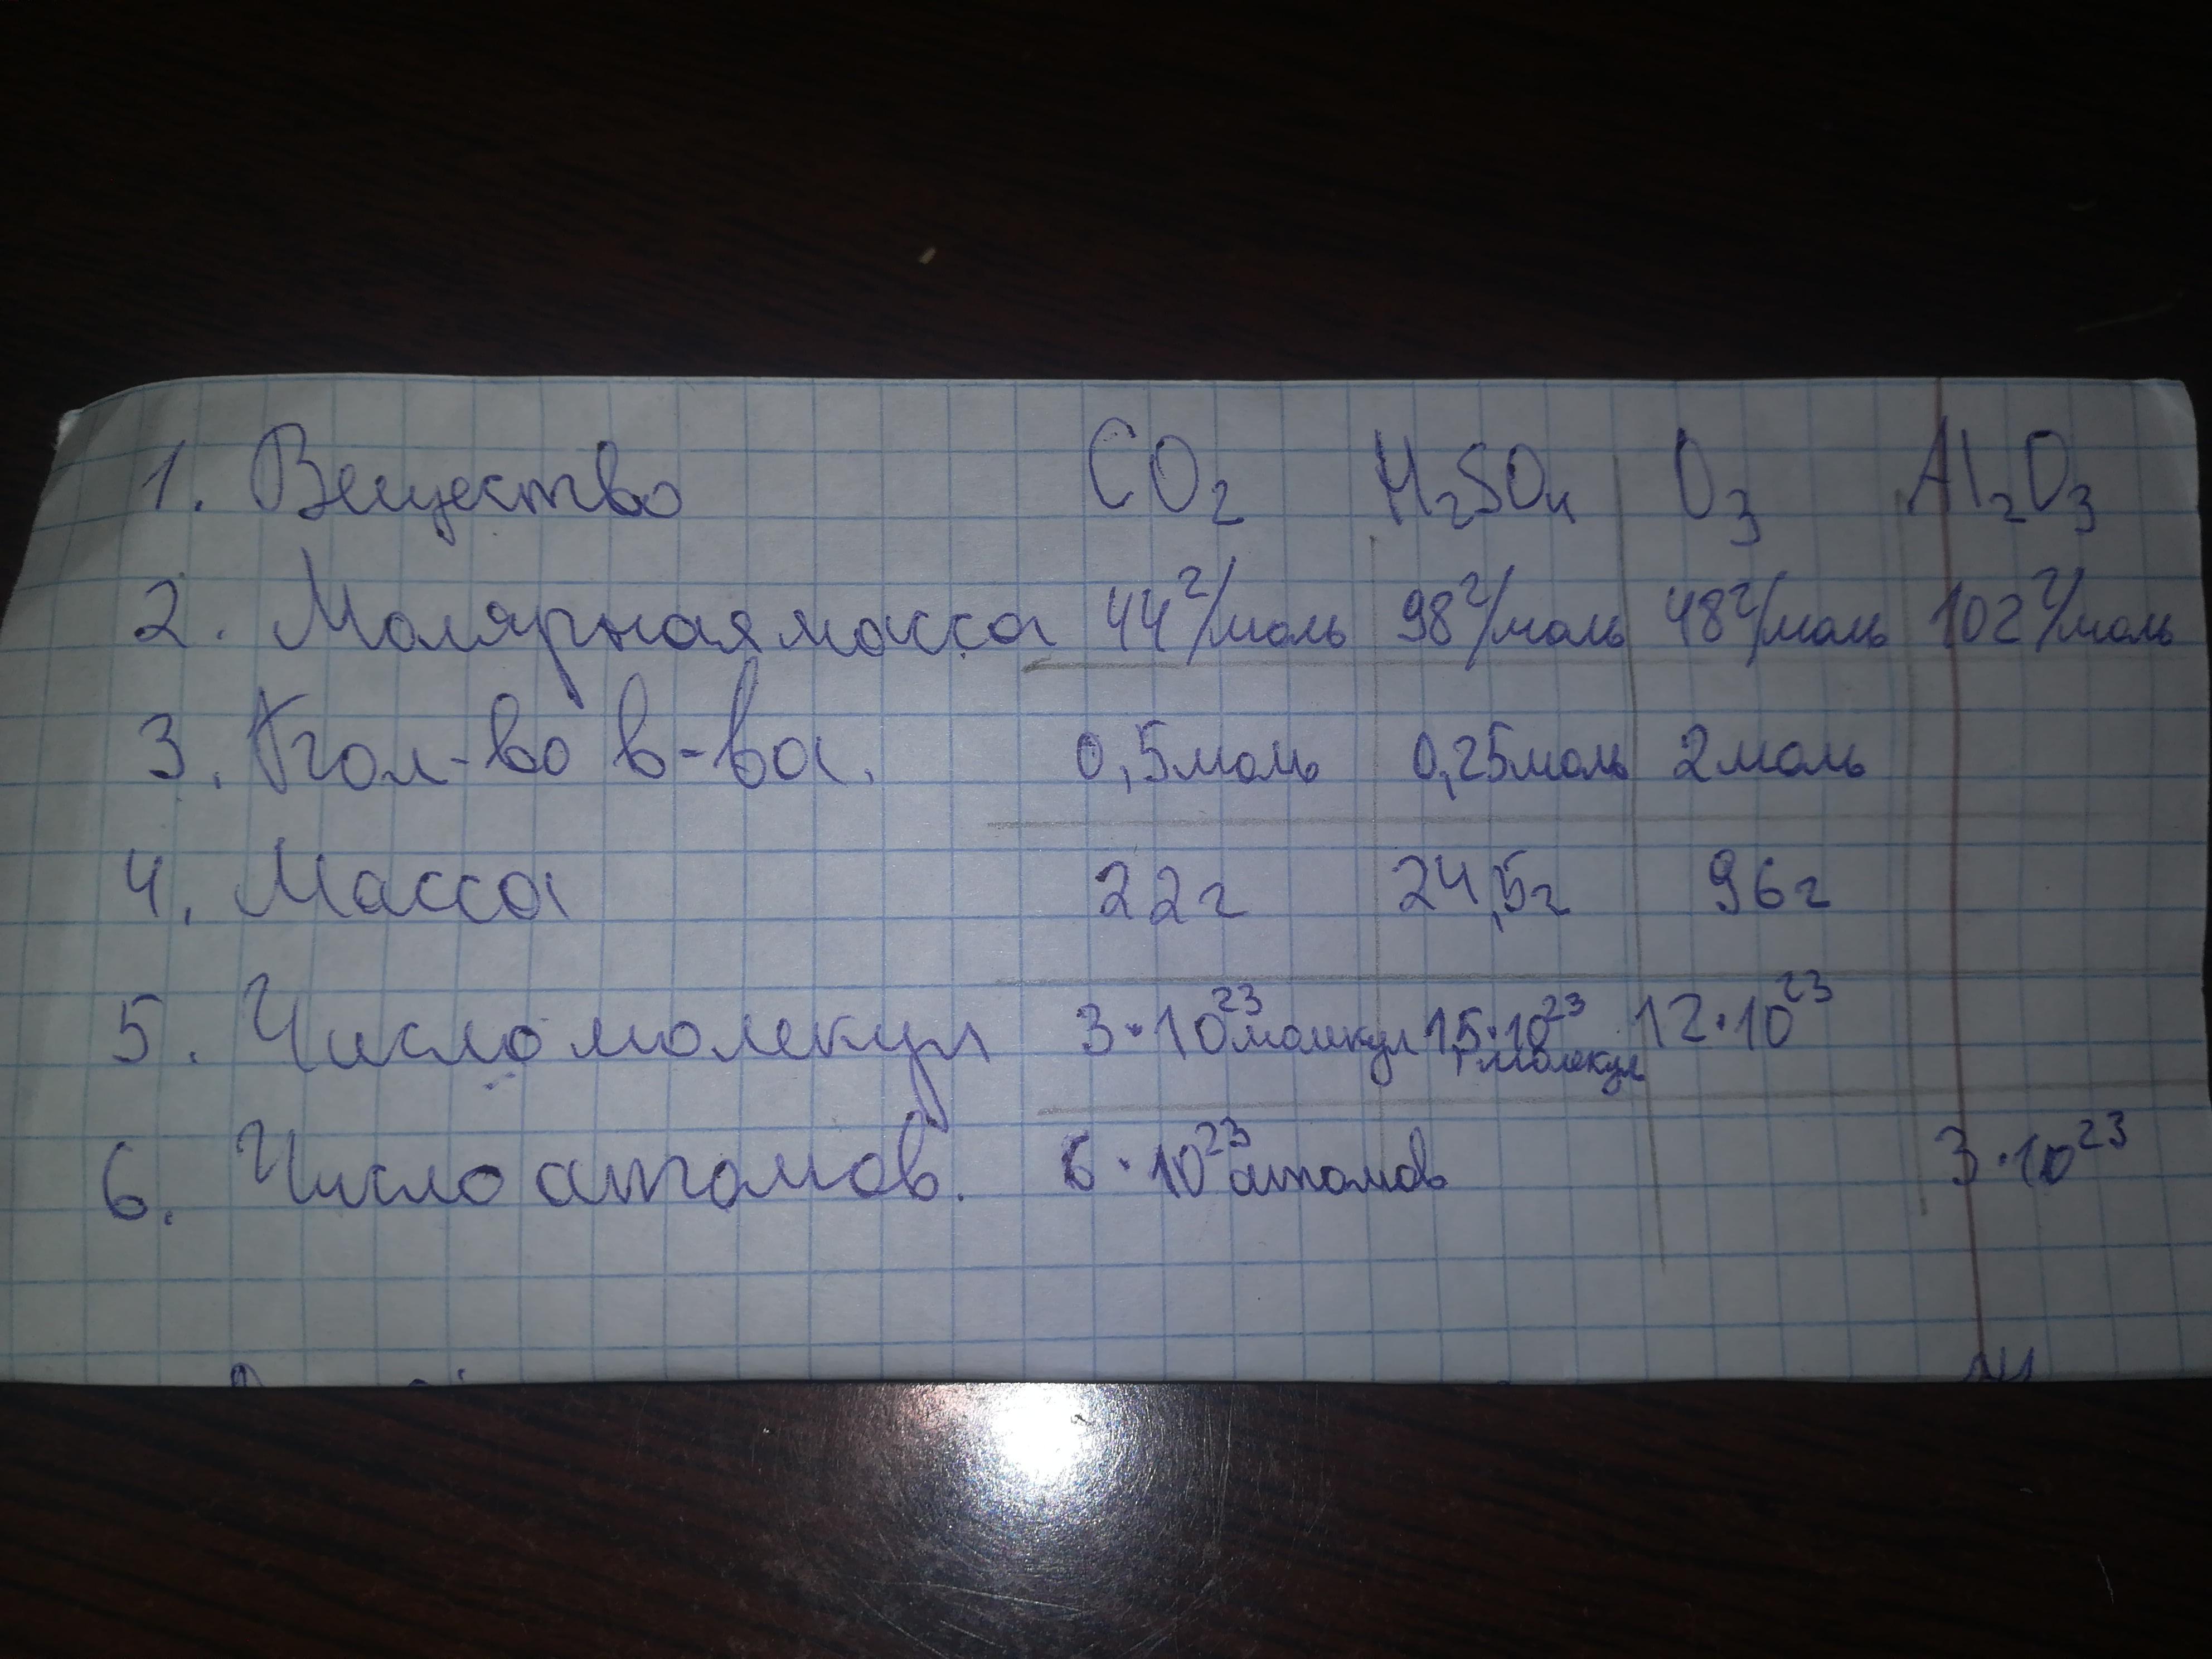 1. Вещество CO₂ H₂SO₄ O₃ Al₂O₃
2. Молярная масса 44 г/моль 98 г/моль 48 г/моль 102 г/моль
3. Кол-во в-ва. 0,5 моль 0,25 моль 2 моль
4. Масса 22 г 24,5 г 96 г
5. Число молекул 3·10²³ молекул 1,5·10²³ молекул 12·10²³
6. Число атомов. 6·10²³ атомов 3·10²³